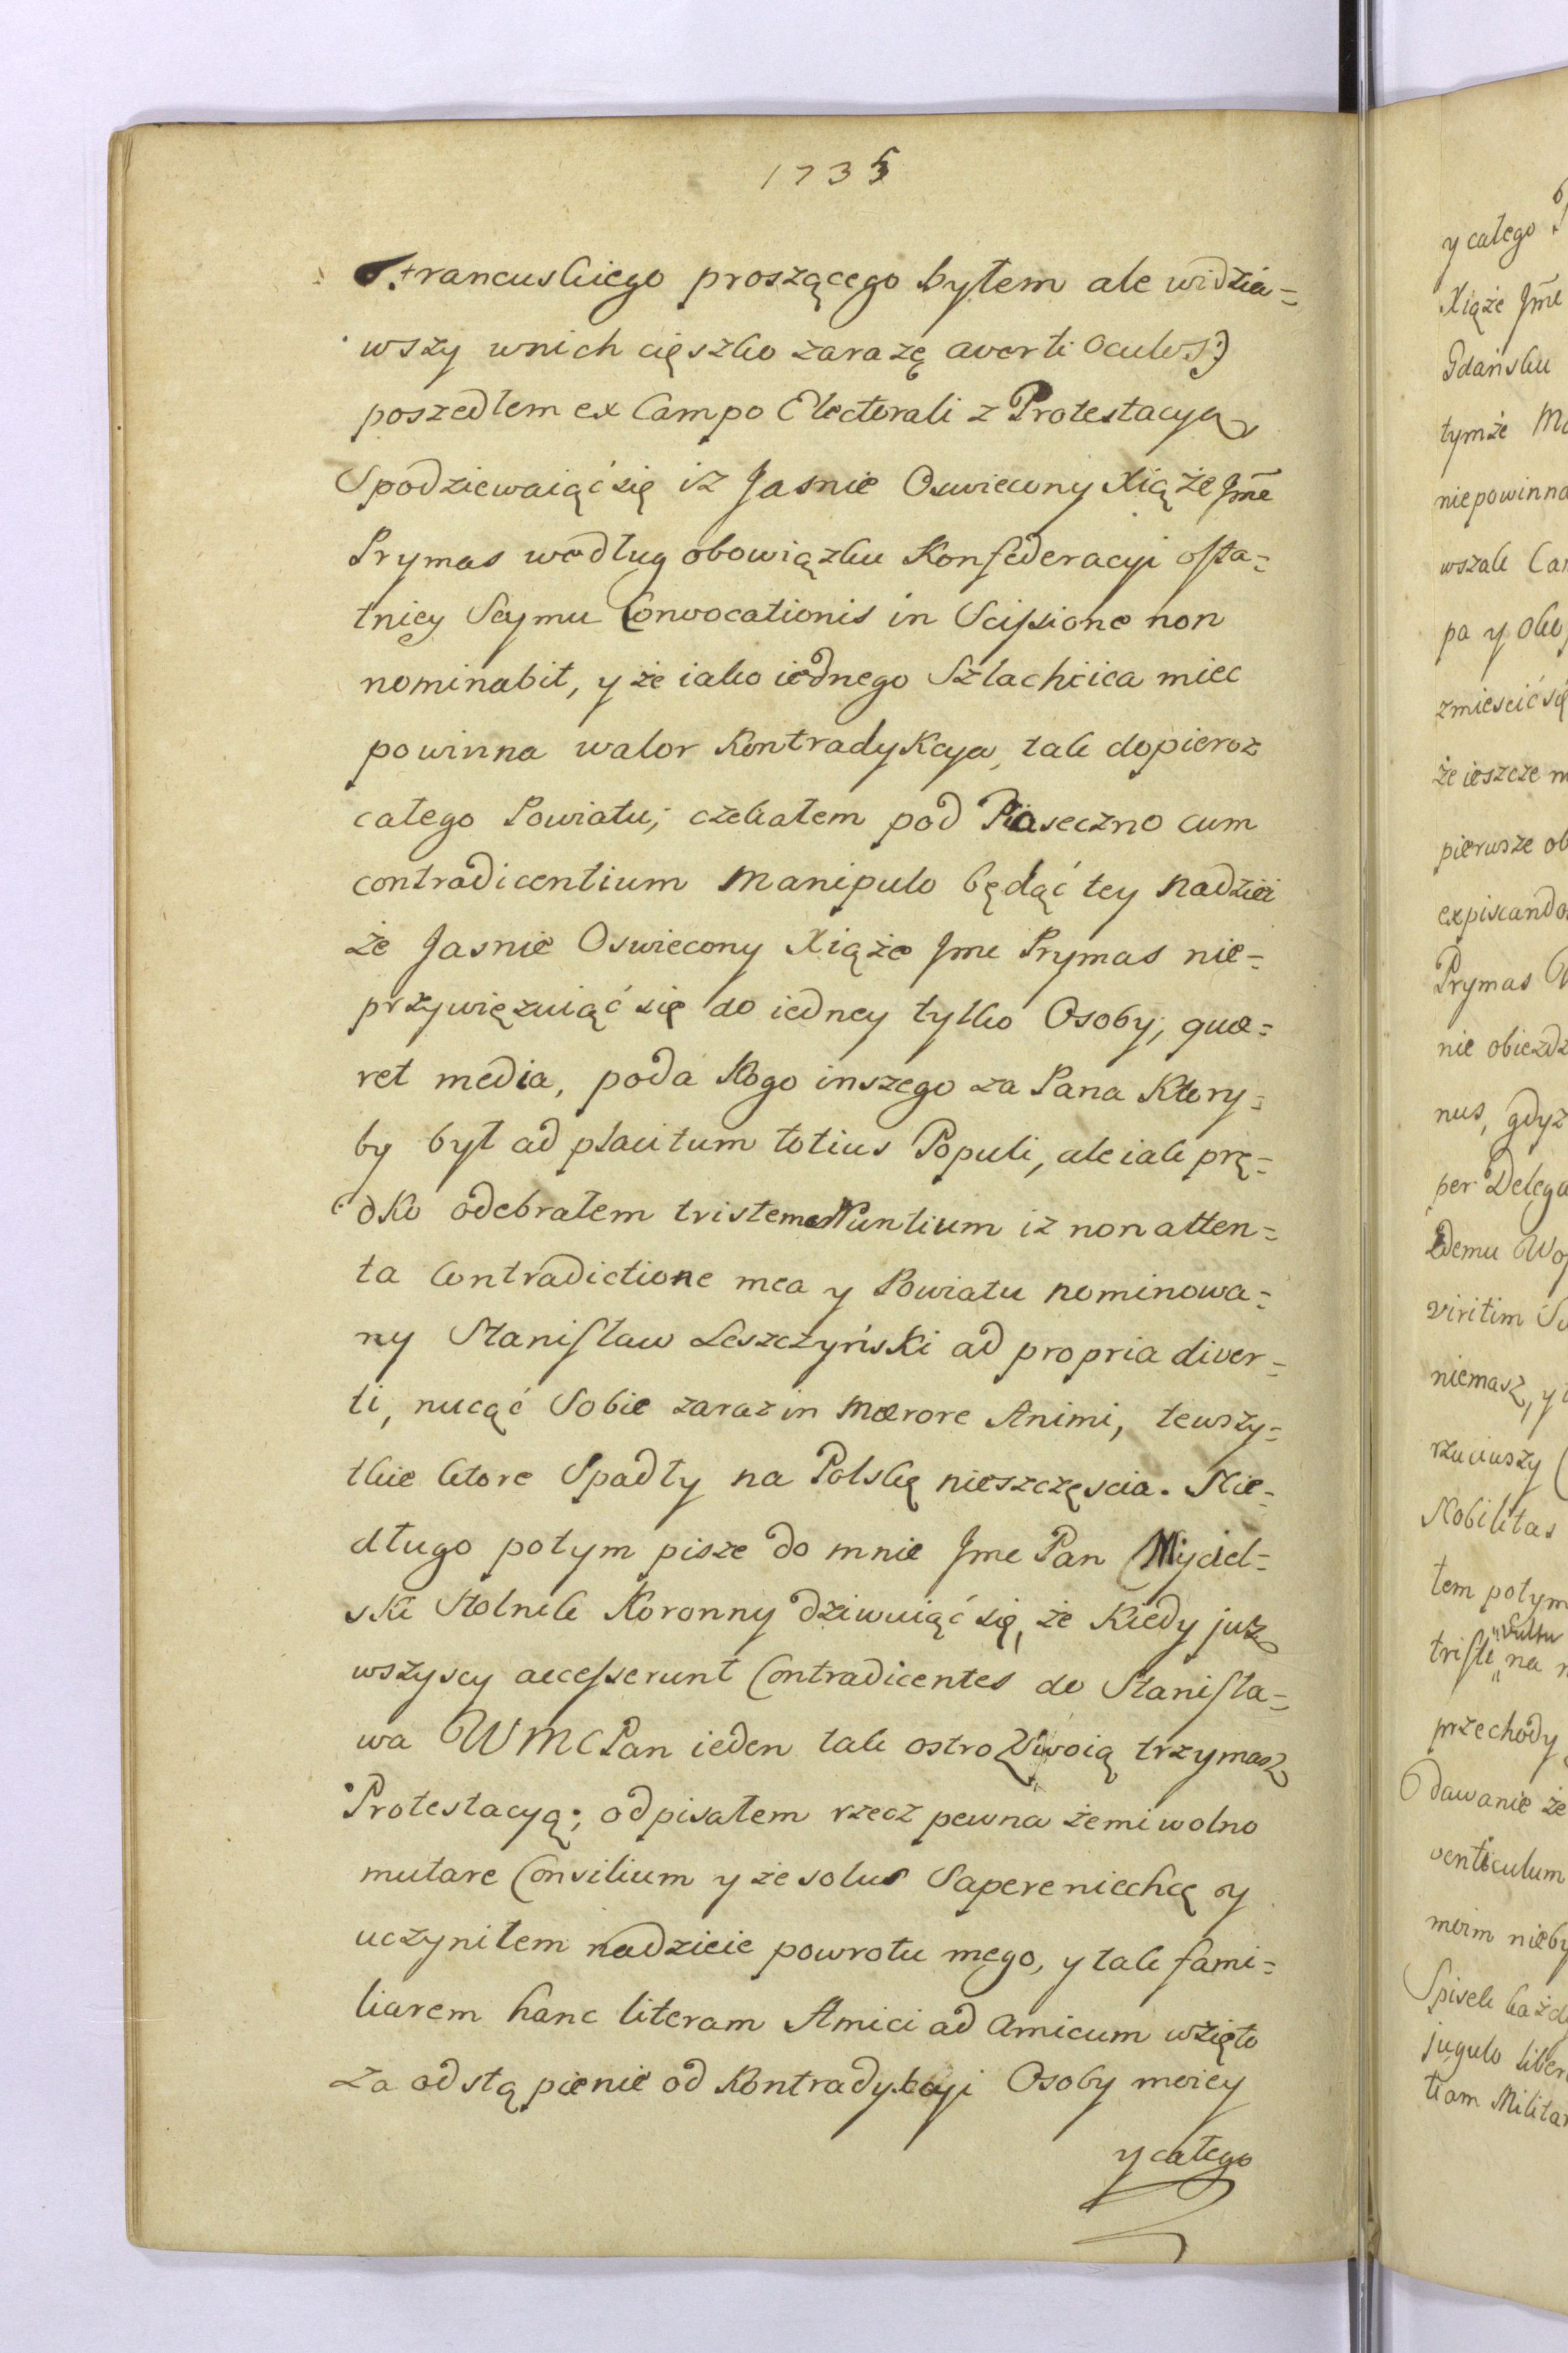 1735
Francuskiego proszącego byłem ale widzia=
wszy wnich cięszko zarazę averti oculos:)
poszedłem ex Campo Electorali z Protestacyą
Spodziewaiąć się iz Jasnie Oswiecony Xiąże Jme
Prymas według obowiązku Konfederacyi osta=
tniey Seymu Convocationis in Scissione non
nominabit, y że iako iednego Szlachcica miec
powinna walor Kontradykcya, tak dopieroz
całego Powiatu; czekałem pod Piaseczno cum
contradicentium Manipulo będąć tey nadzieí
że Jasnie Oswiecony Xiąże Jme Prymas nie=
przywięzuiąć się do iedney tylko Osoby, quæ=
ret media, poda Kogo inszego za Pana Ktory=
by był ad placitum totius Populi, ale iak prę=
dko odebrałem tristem Nuntium iz non atten=
ta Contradictione mea y Powiatu nominowa=
ny Stanisław Leszczyński ad propria diver=
ti, nucąć Sobie zaraz in Mærore Animi, tewszy=
tkie ktore Spadły na Polskę nieszczęscia. Nie=
długo potym pisze do mnie Jme Pan Myciel=
ski Stolnik Koronny dziwuiąć się, że Kiedy juz
wszyscy accesserunt Contradicentes do Stanisła=
wa WMCPan ieden tak ostro Swoią trzymasz
Protestacyą; odpisałem rzecz pewna żemi wolno
mutare Consilium y że solus Sapere niechcę y
uczyniłem nadzieie powrotu mego, y tak fami=
liarem hanc literam Amici ad Amicum wzięto
za odstąpienie od Kontradykcyi Osoby moiey
y całego
y całego
Xiąże Jme
Gdańsku
tymże
niepowinna
wszak
pa y
zmiescić się
że ieszcze
pierwsze
Prymas
nie
nus, gdyz
per
viritim
niemasz,
rzuciwszy
Nobilitas
tem potym
vultu
tristi na
przechody
dawanie że
venticulum
moim
Spisek
jugulo
tiam